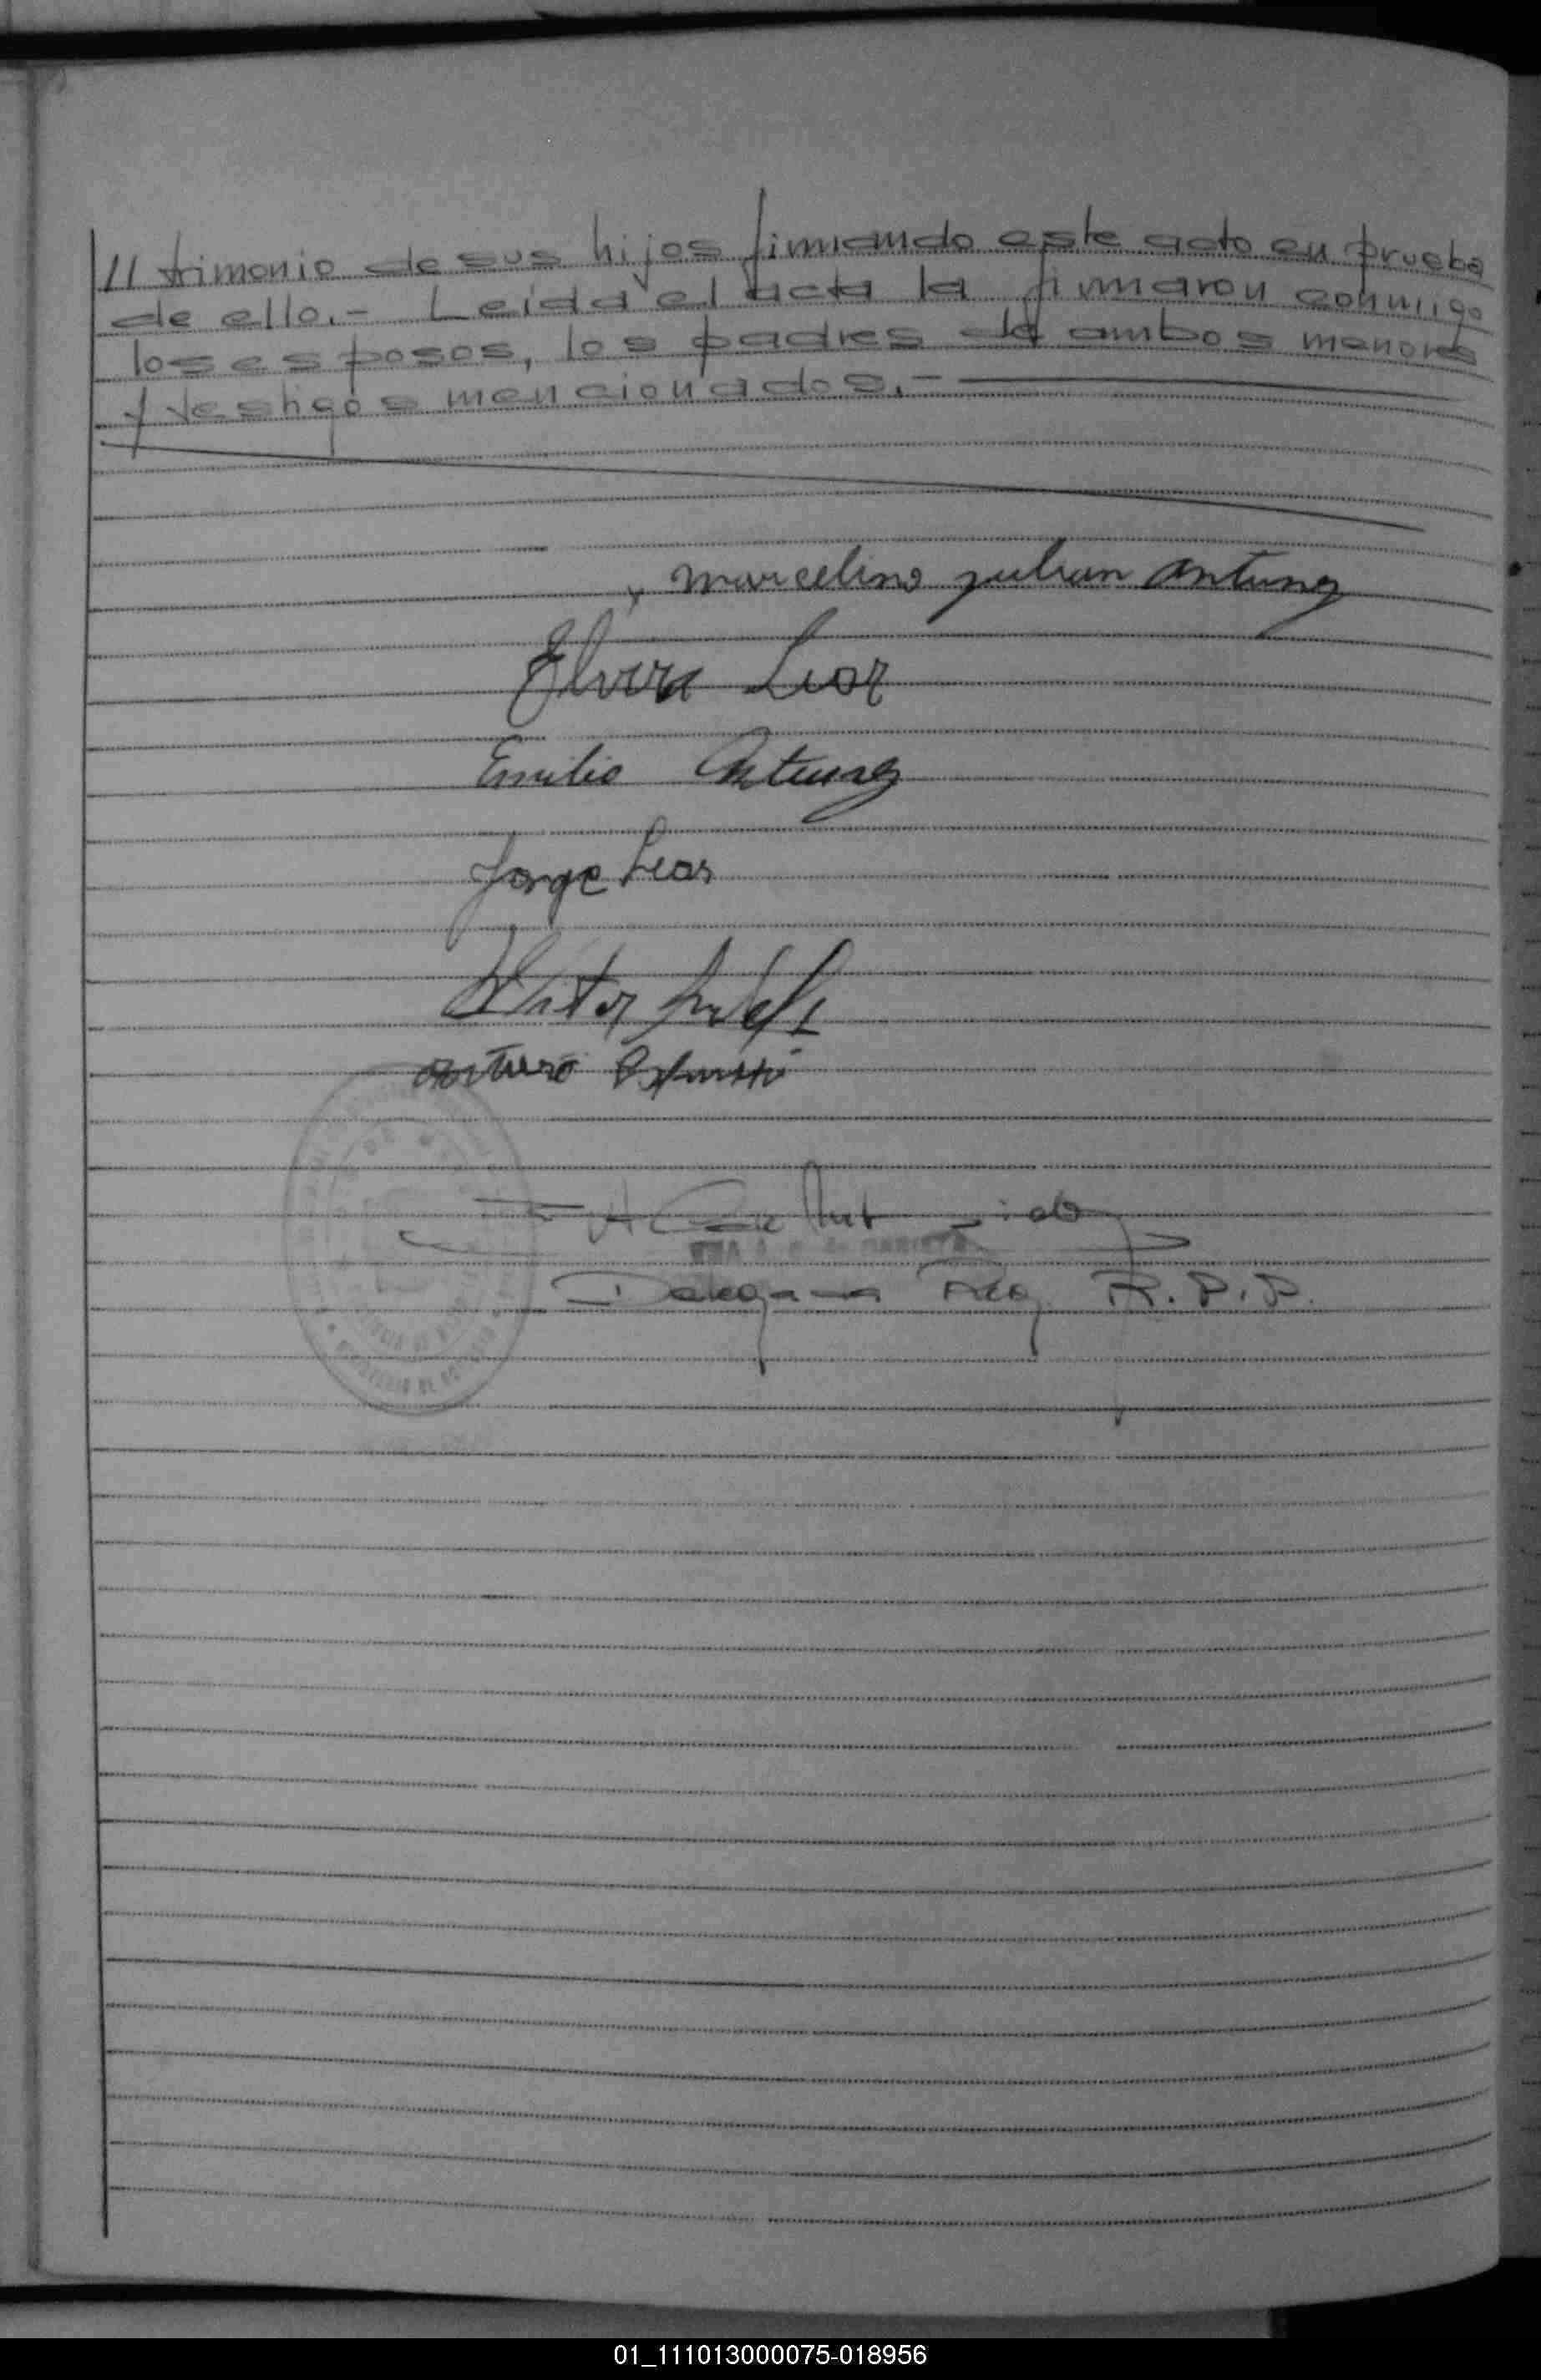 // trimonio de sus hijos firmando este acto en prueba
de ello.- Leida el acta la firmaron conmigo
los esposos, los padres de ambos menores
y testigos mencionados.-
Marcelino Julian Antunez
Elvira
Emilio Antunez
Jorge
Arturo
Delegada Reg. R.P.P.
01_111013000075-018956